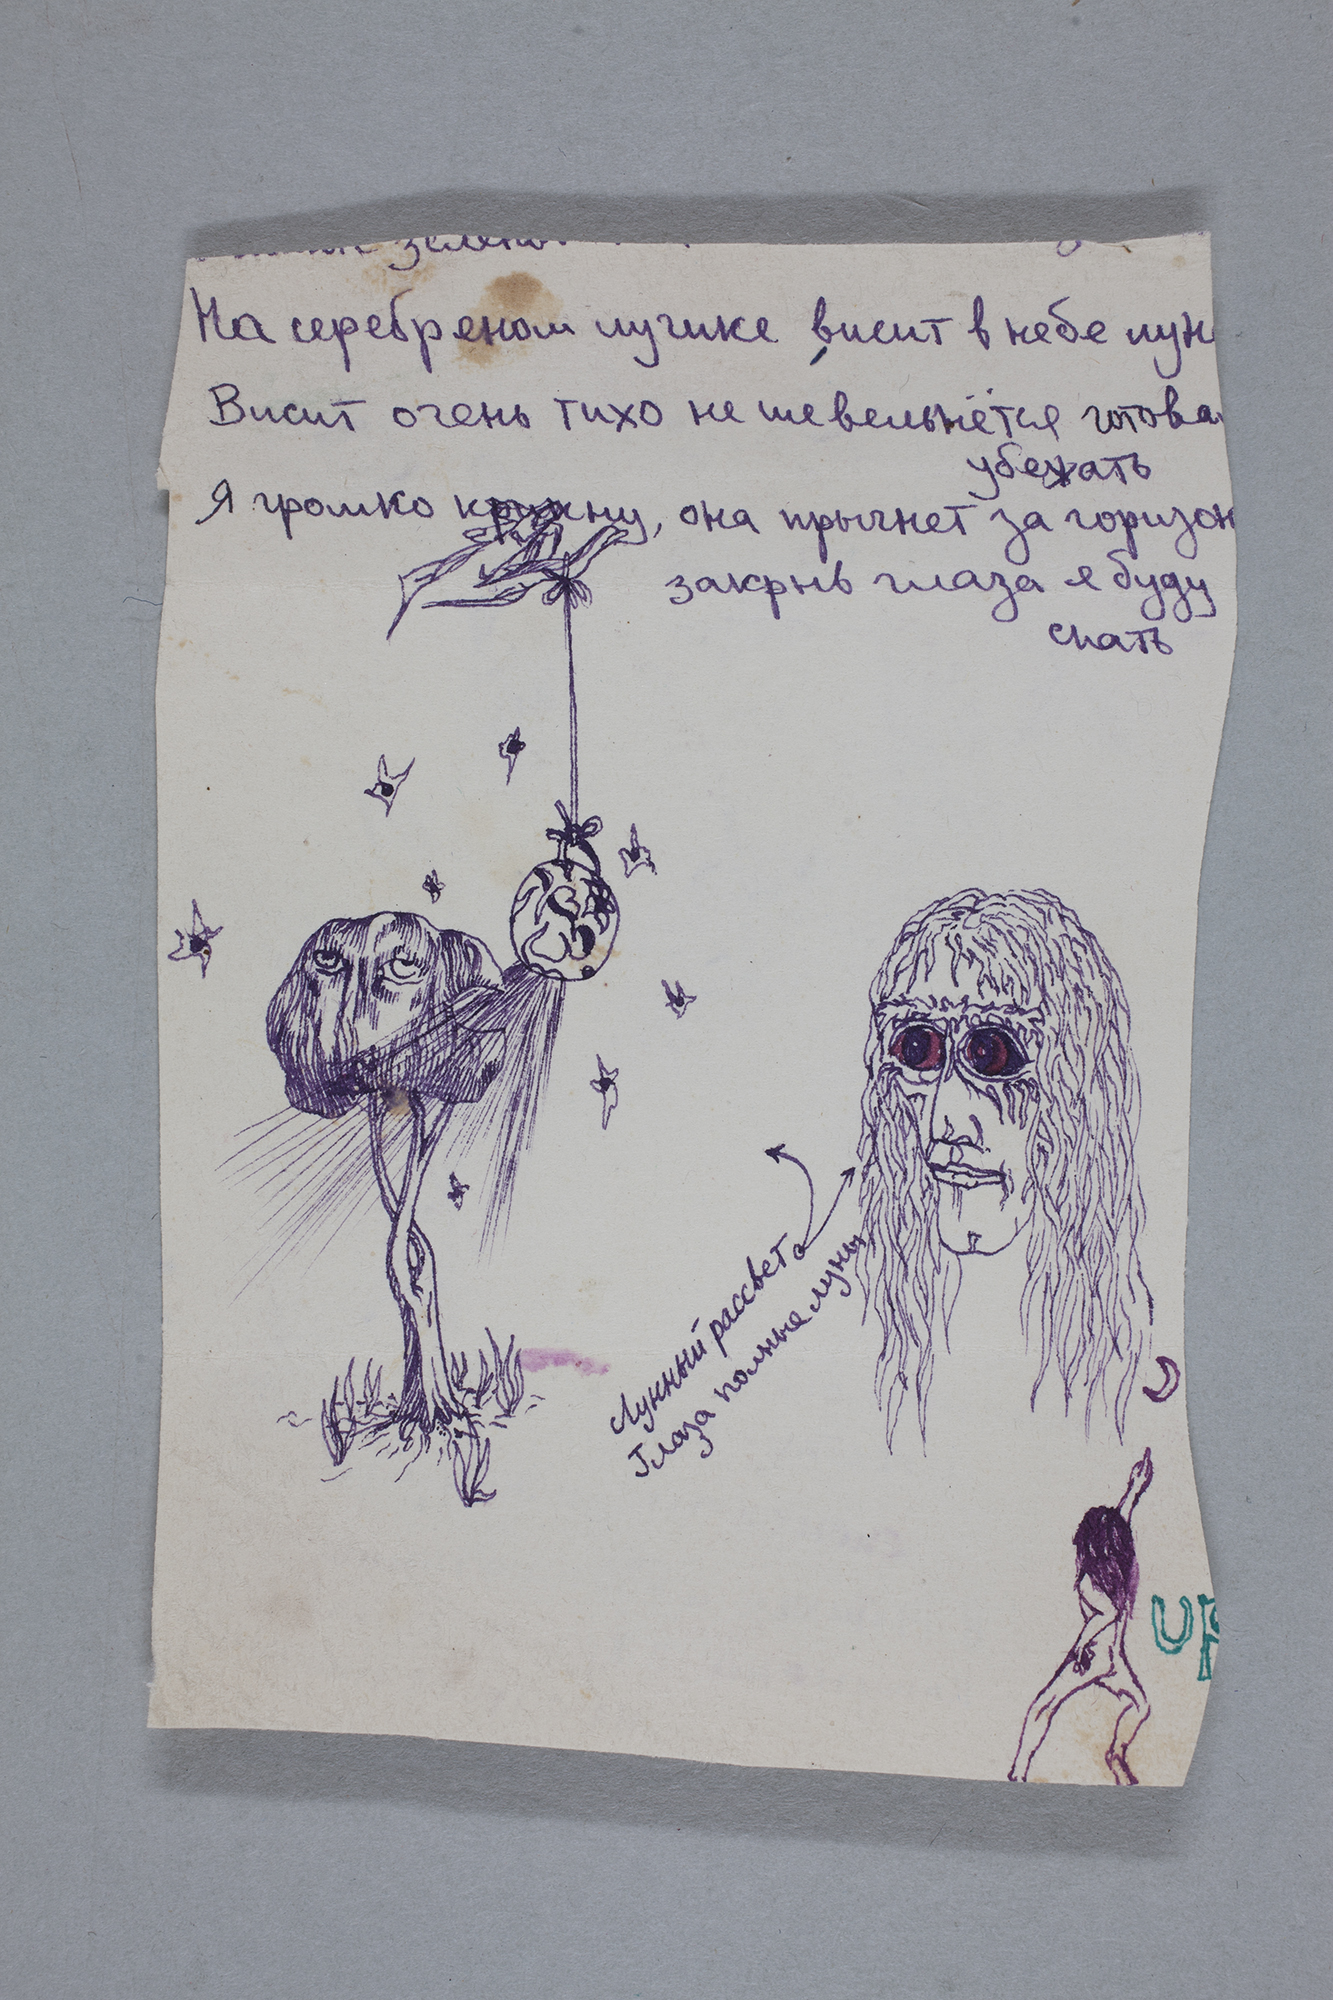 зелено
На серебреном лучике висит в небе лун
Висит очень тихо не шевельнётся готова
убежать
Я громко крикну, она прыгнет за горизон
закрыв глаза я буду
спать
Лунный рассвет
Глаза полные луны
UP